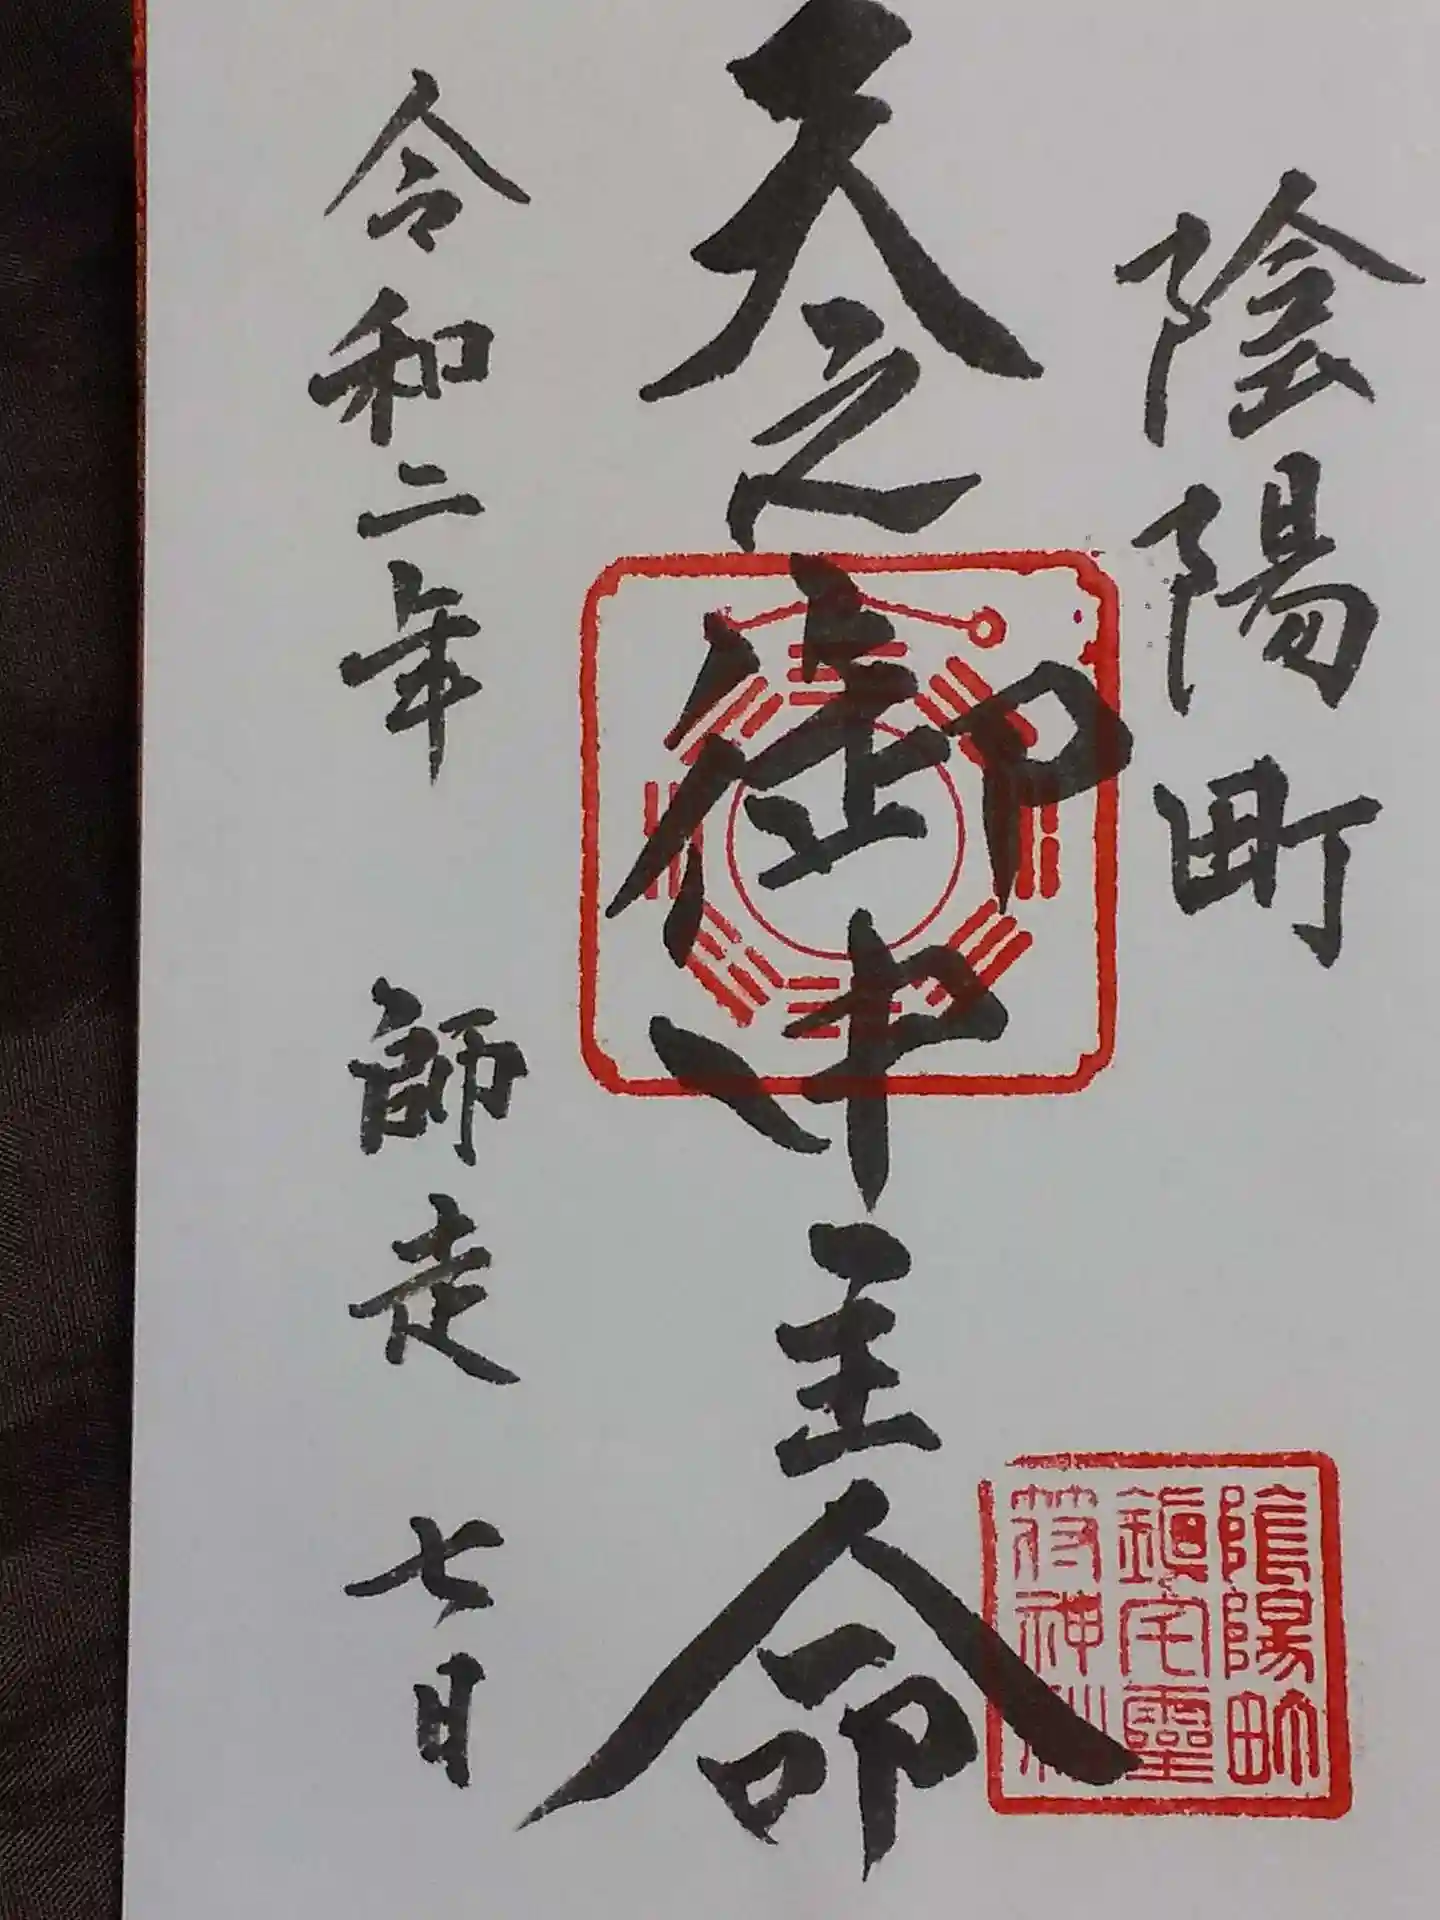 陰陽町
天之御中主命
令和二年 師走 七日
陰陽町
鎭宅靈
符神社